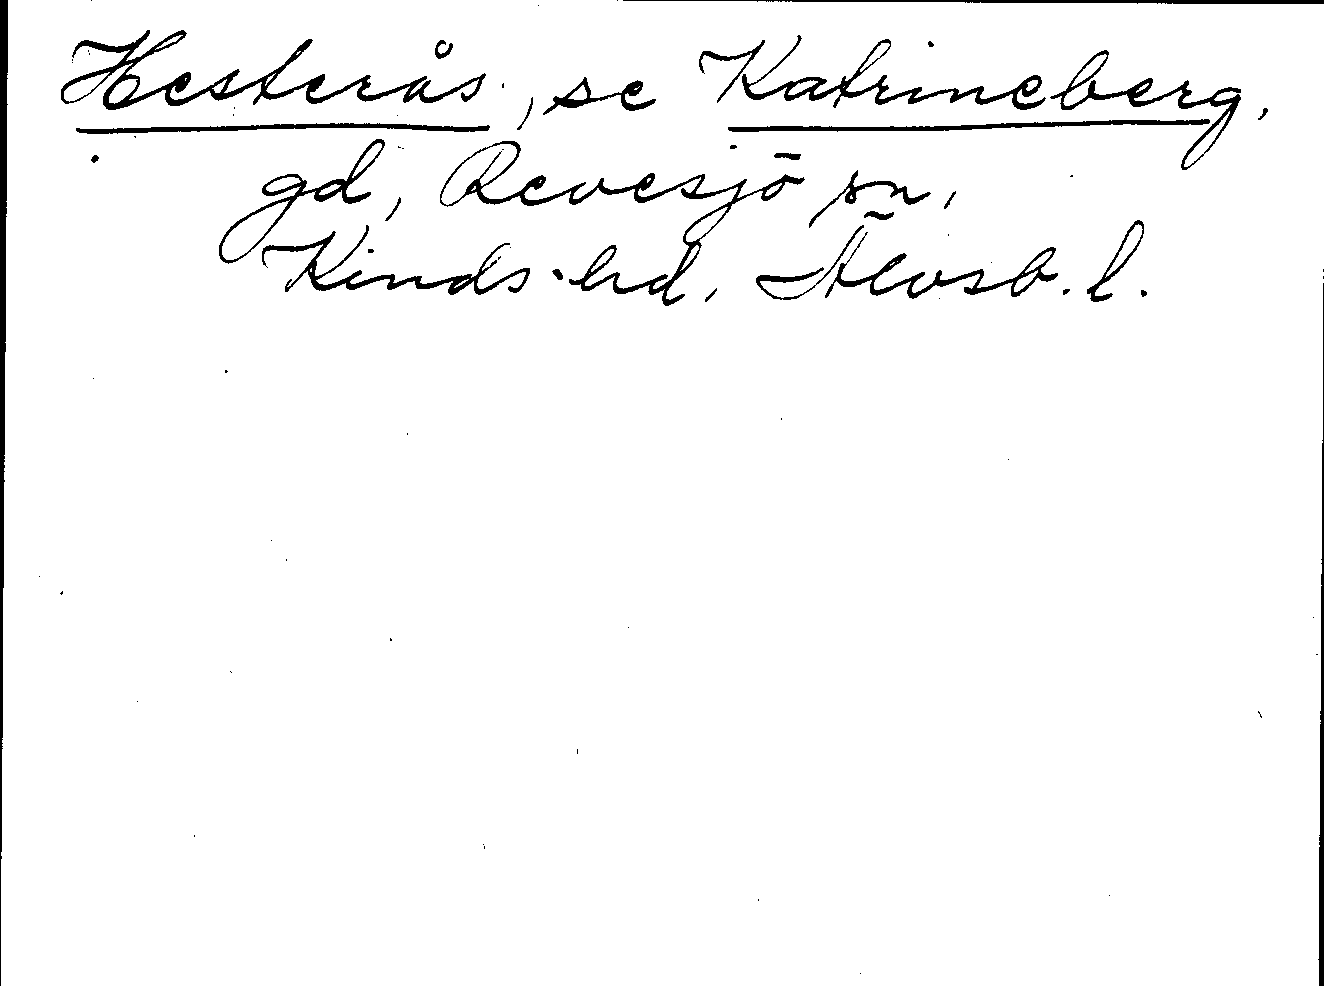 Hesterås, se Katrineberg,
gd, Revesjö sn,
Kinds hd, Älvsb. l.